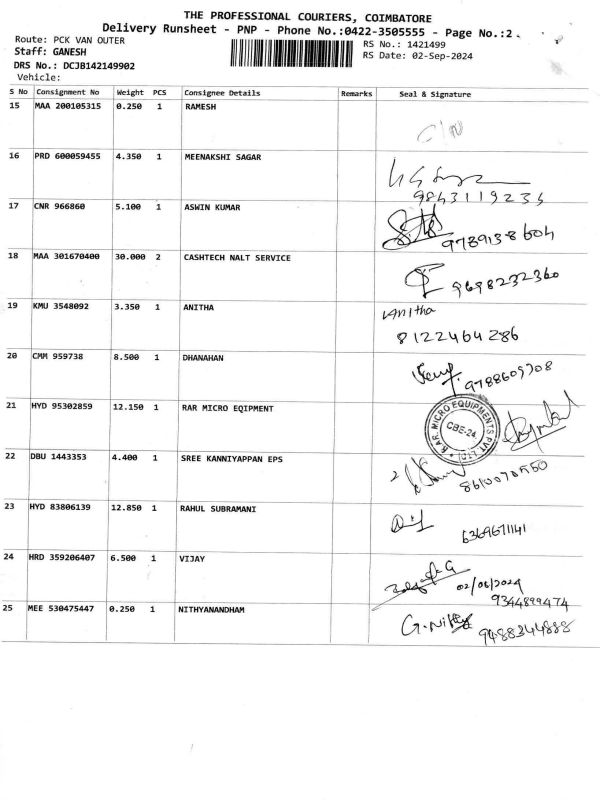 THE PROFESSIONAL COURIERS, COIMBATORE
Delivery Runsheet - PNP - Phone No.:0422-3505555 - Page No.:2
Route: PCK VAN OUTER
RS No.: 1421499
Staff: GANESH
RS Date: 02-Sep-2024
DRS No.: DCJB142149902
Vehicle:
S No Consignment No Weight PCS Consignee Details Remarks Seal & Signature
15 MAA 200105315 0.250 1 RAMESH
16 PRD 600059455 4.350 1 MEENAKSHI SAGAR
9843119234
17 CNR 966860 5.100 1 ASWIN KUMAR
9789138604
18 MAA 301670400 30.000 2 CASHTECH NALT SERVICE
9698232360
19 KMU 3548092 3.350 1 ANITHA Anitha
8122464286
20 CMM 959738 8.500 1 DHANAHAN
9788609708
21 HYD 95302859 12.150 1 RAR MICRO EQIPMENT
R.A.R. MICRO EQUIPMENTS PVT. LTD.
CBE-24
22 DBU 1443353 4.400 1 SREE KANNIYAPPAN EPS
8610070550
23 HYD 83806139 12.850 1 RAHUL SUBRAMANI
6369671141
24 HRD 359206407 6.500 1 VIJAY
02/06/2024
9344899474
25 MEE 530475447 0.250 1 NITHYANANDHAM
9488344888